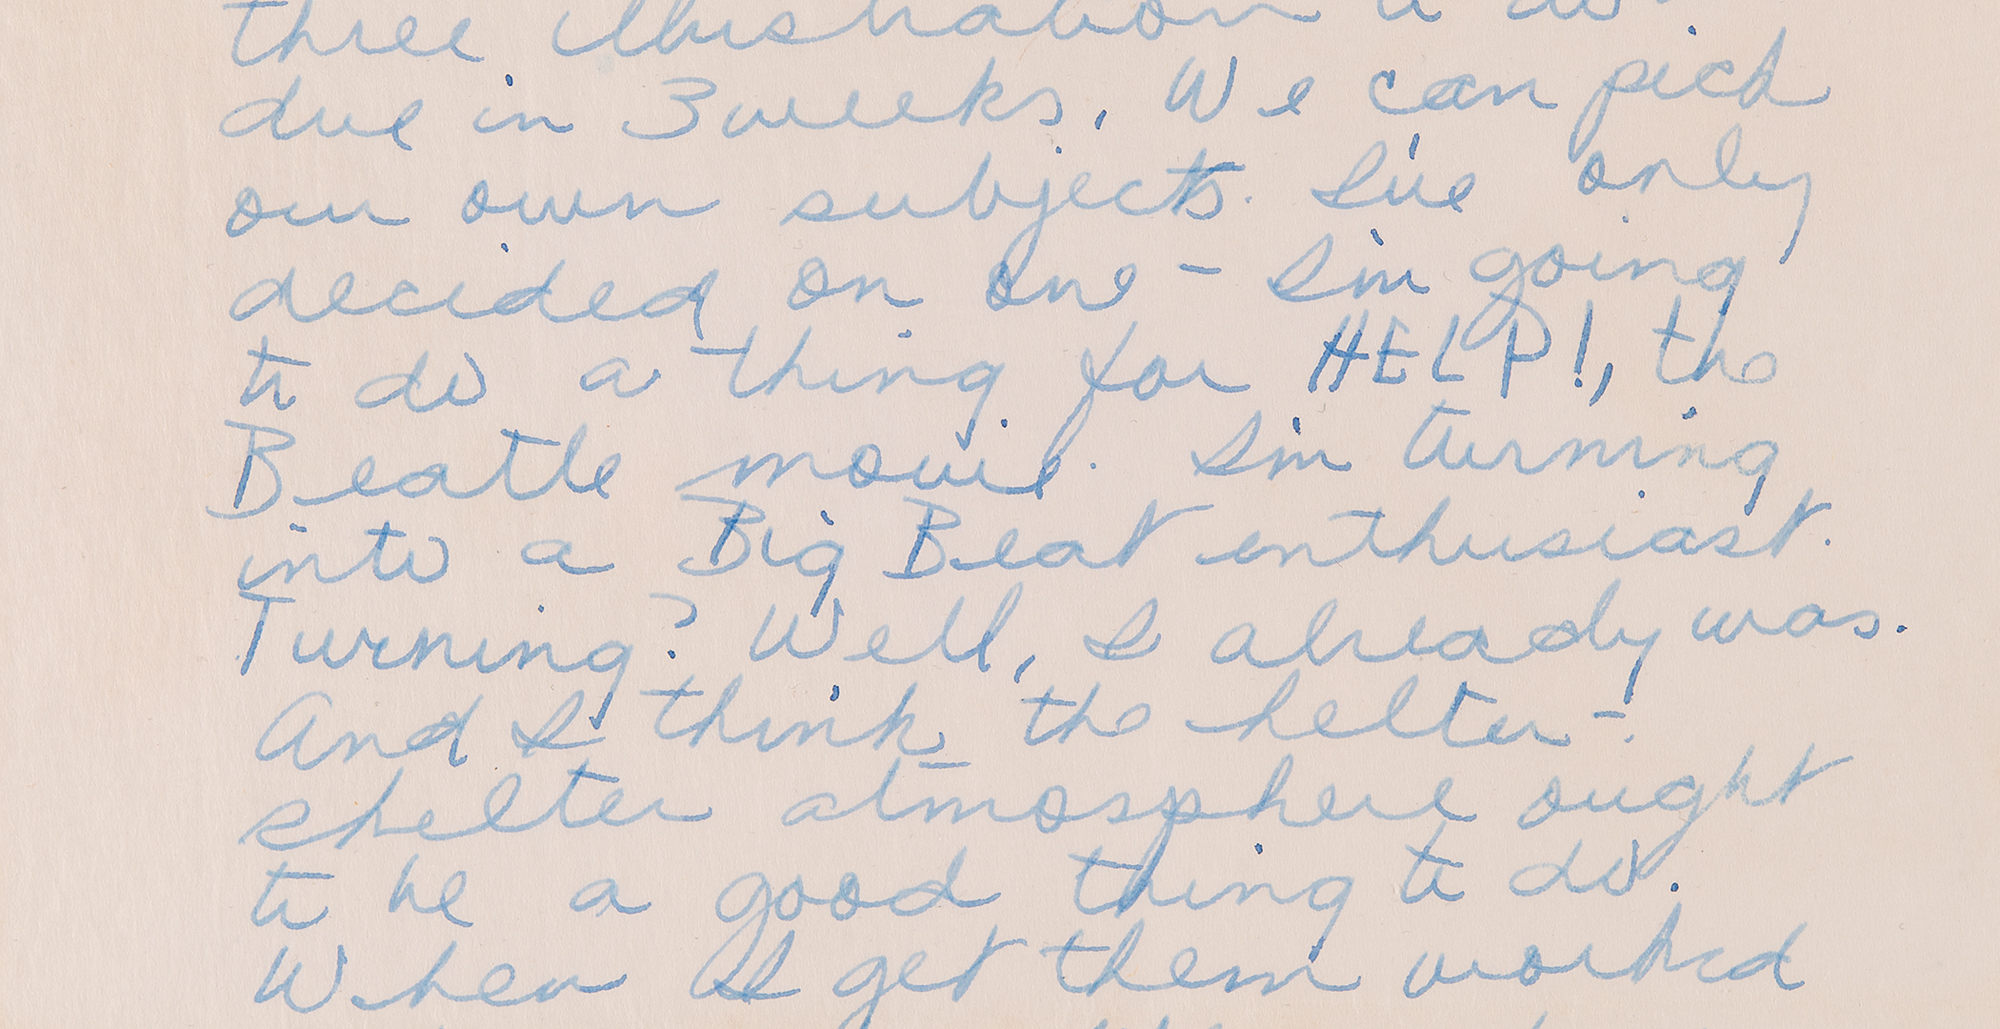 three illustration to do.
due in 3 weeks. We can pick
our own subjects. I've only
decided on one - I'm going
to do a thing for HELP!, the
Beatle movie. I'm turning
into a Big Beat enthusiast.
Turning? Well, I already was.
And I think the helter-
shelter atmosphere ought
to be a good thing to do.
When I get them worked